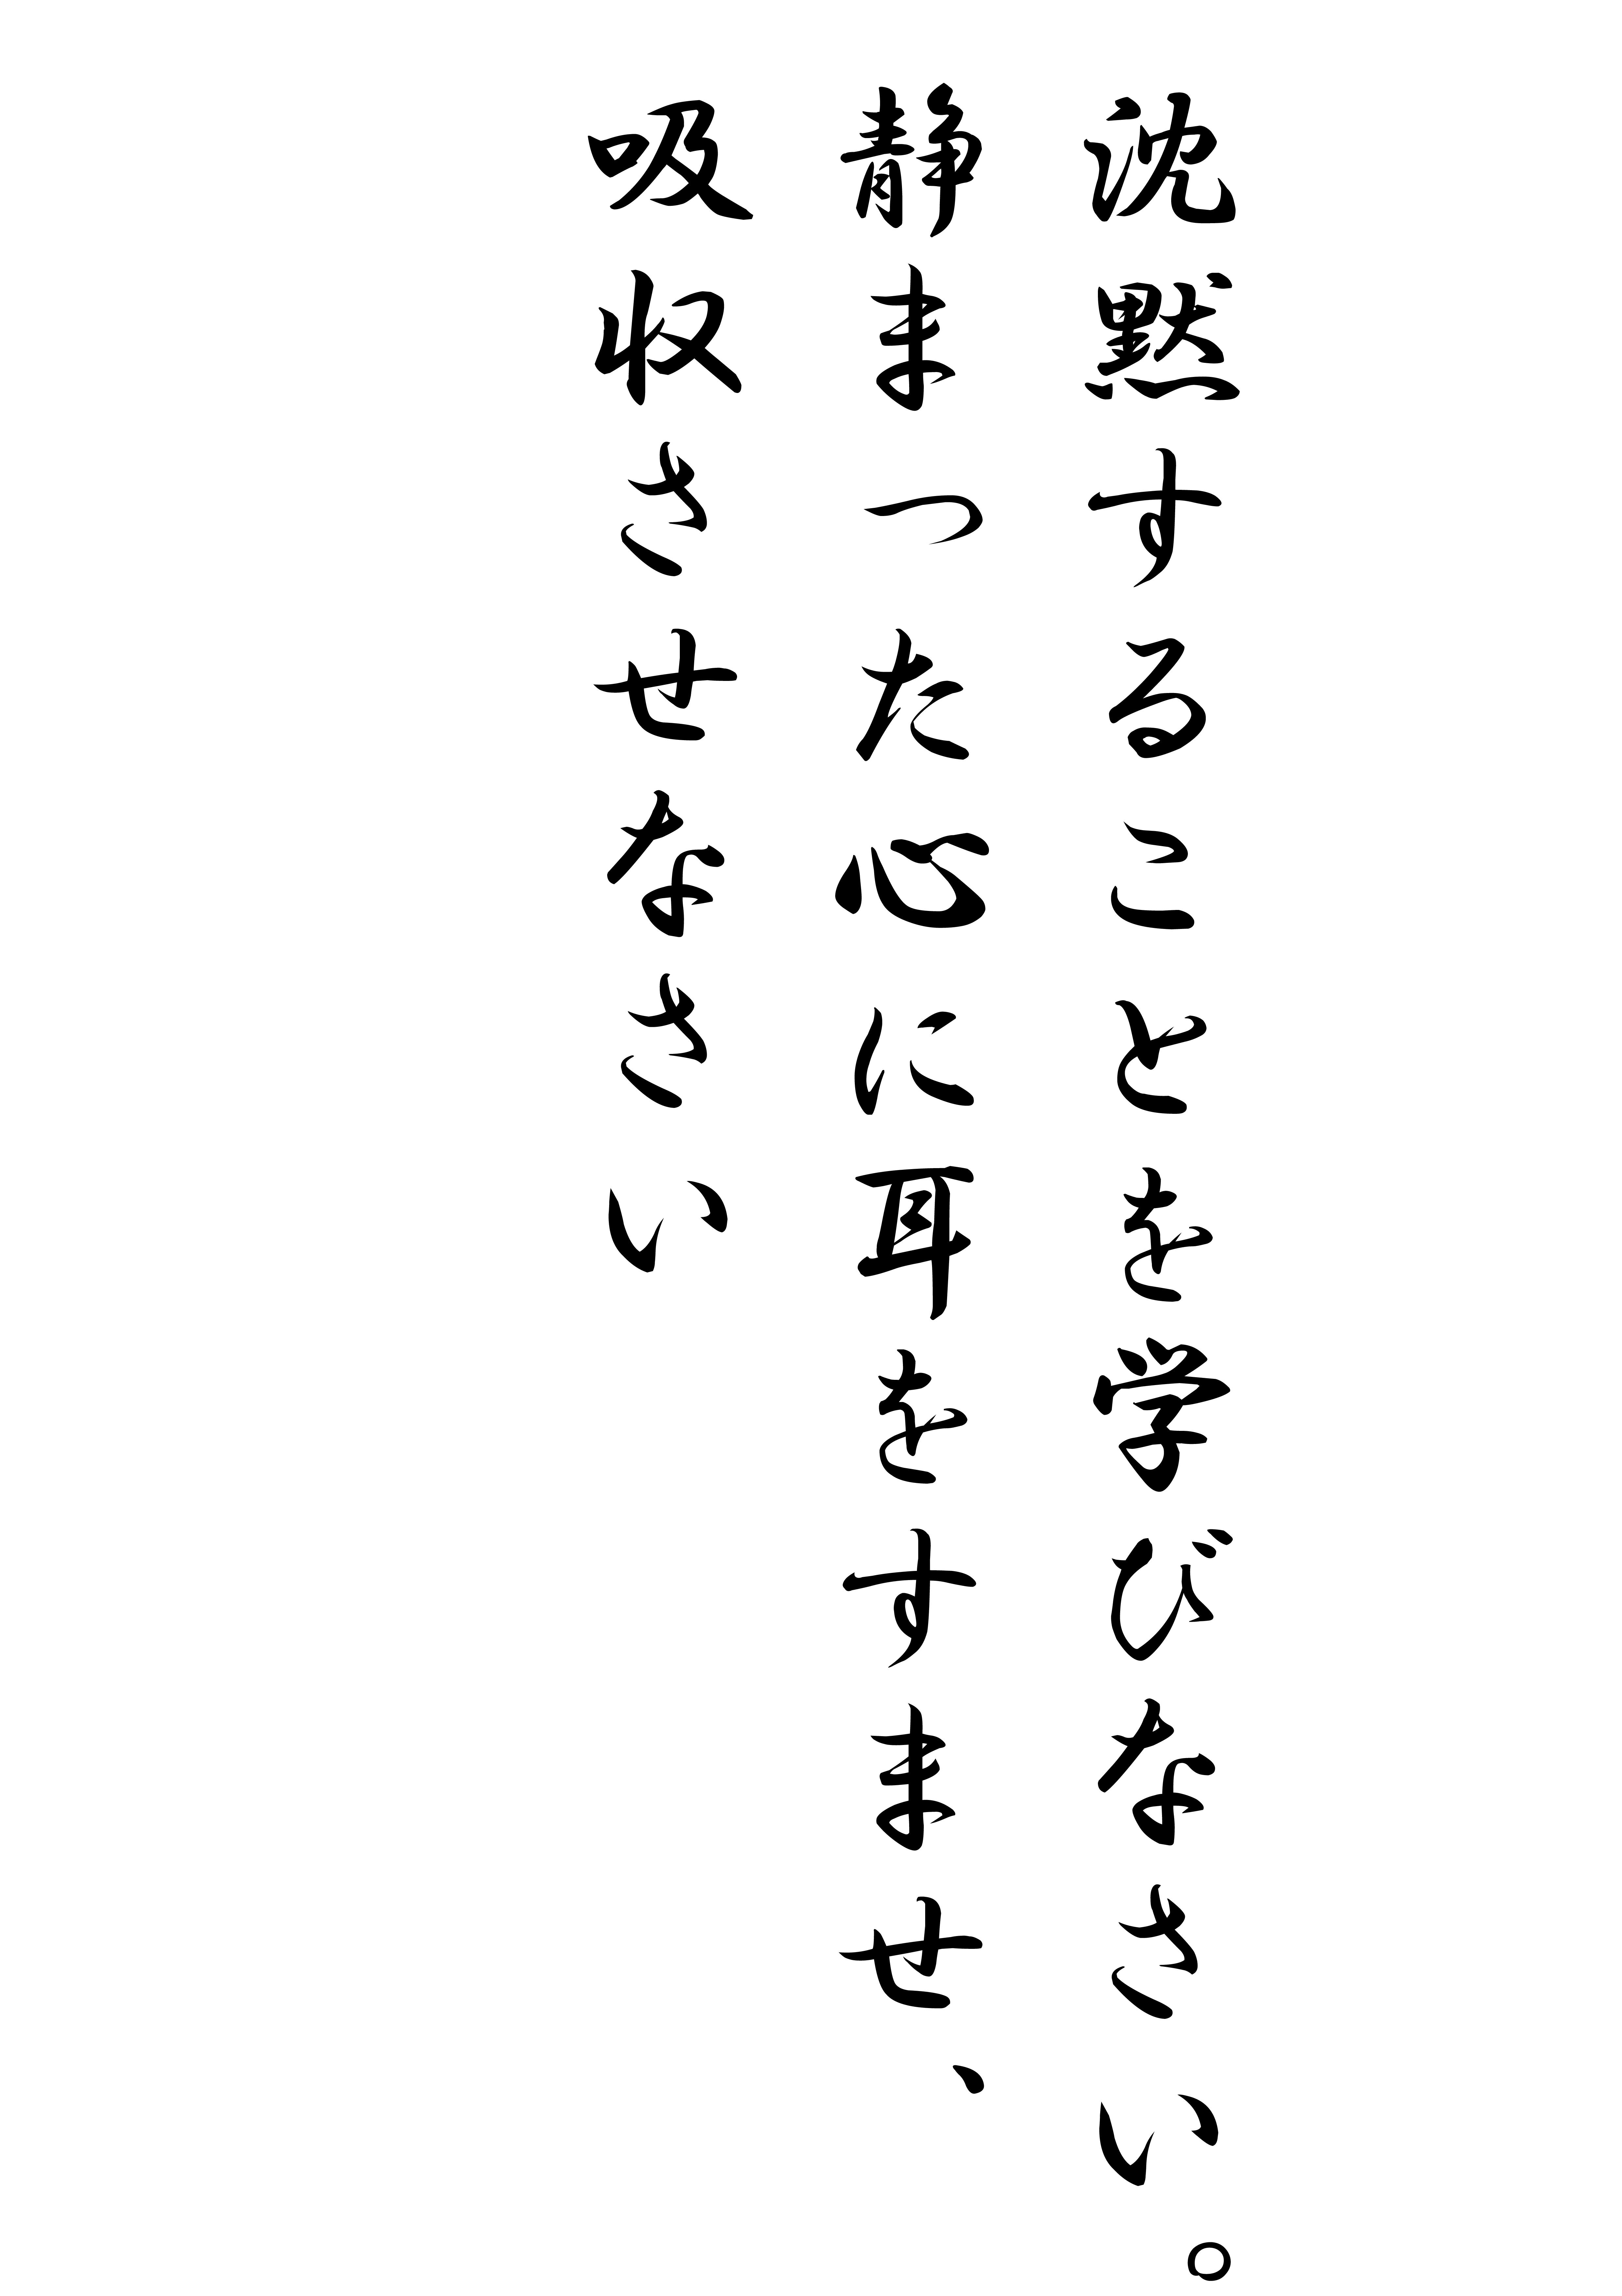 沈黙することを学びなさい。
静まった心に耳をすませ、
吸収させなさい